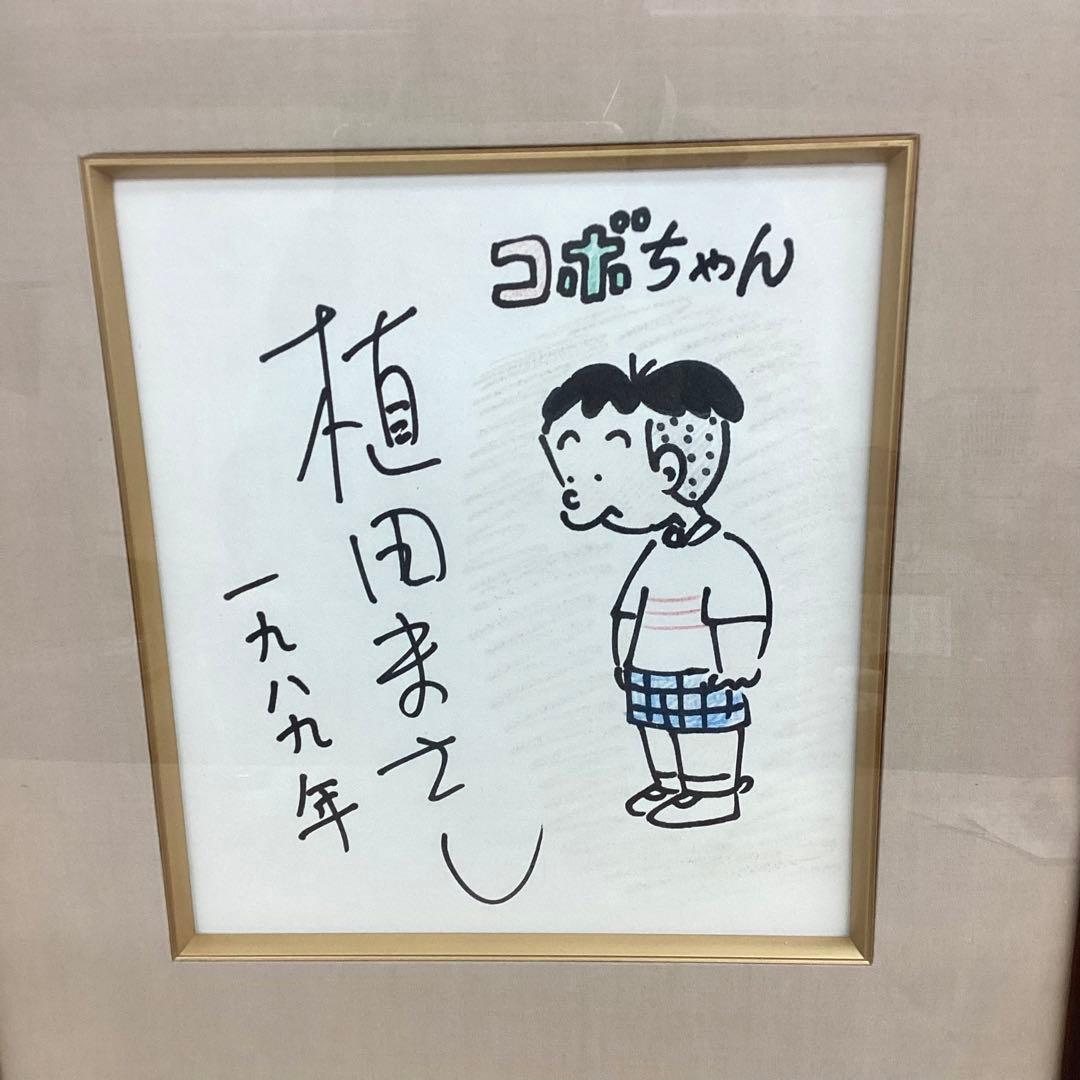 コボちゃん
植田まさし
一九八九年